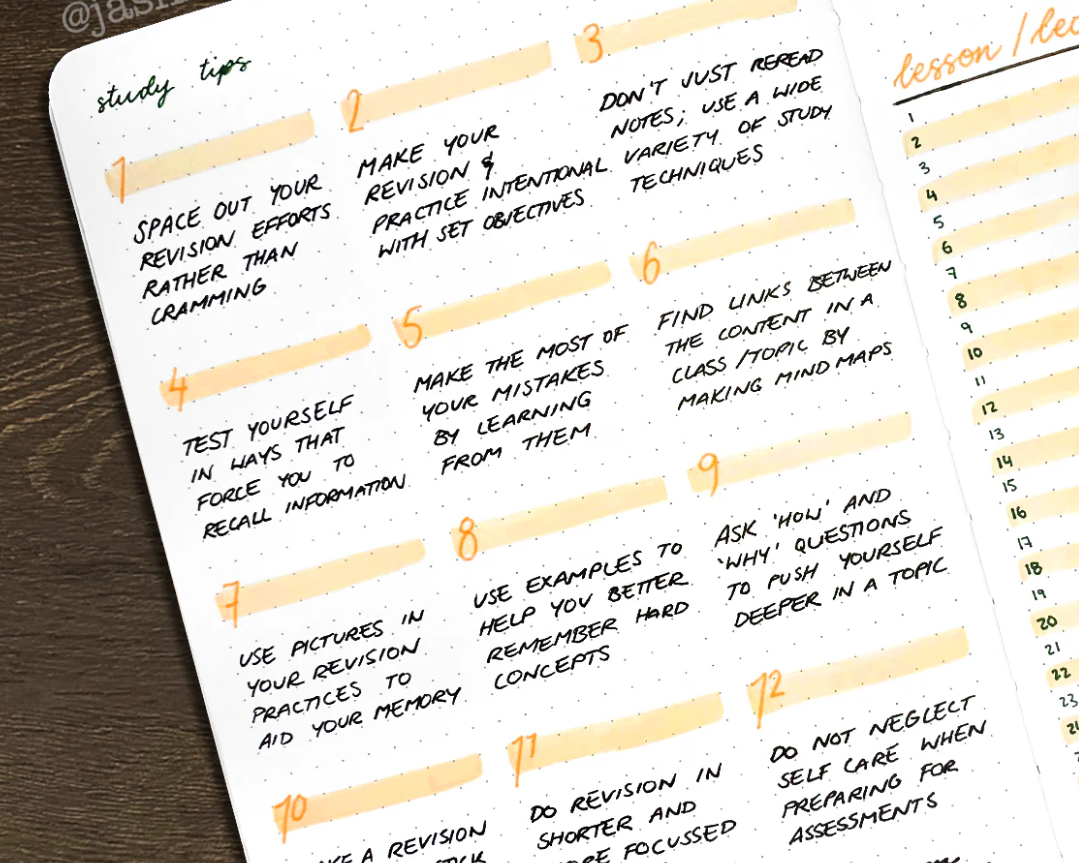 study tips
1
SPACE OUT YOUR
REVISION EFFORTS
RATHER THAN
CRAMMING
2
MAKE YOUR
REVISION &
PRACTICE INTENTIONAL
WITH SET OBJECTIVES
3
DON'T JUST REREAD
NOTES; USE A WIDE
VARIETY OF STUDY
TECHNIQUES
4
TEST YOURSELF
IN WAYS THAT
FORCE YOU TO
RECALL INFORMATION
5
MAKE THE MOST OF
YOUR MISTAKES
BY LEARNING
FROM THEM
6
FIND LINKS BETWEEN
THE CONTENT IN A
CLASS / TOPIC BY
MAKING MIND MAPS
7
USE PICTURES IN
YOUR REVISION
PRACTICES TO
AID YOUR MEMORY
8
USE EXAMPLES TO
HELP YOU BETTER
REMEMBER HARD
CONCEPTS
9
ASK 'HOW' AND
'WHY' QUESTIONS
TO PUSH YOURSELF
DEEPER IN A TOPIC
10
A REVISION
11
DO REVISION IN
SHORTER AND
FOCUSSED
12
DO NOT NEGLECT
SELF CARE WHEN
PREPARING FOR
ASSESSMENTS
lesson /
1
2
3
4
5
6
7
8
9
10
11
12
13
14
15
16
17
18
19
20
21
22
23